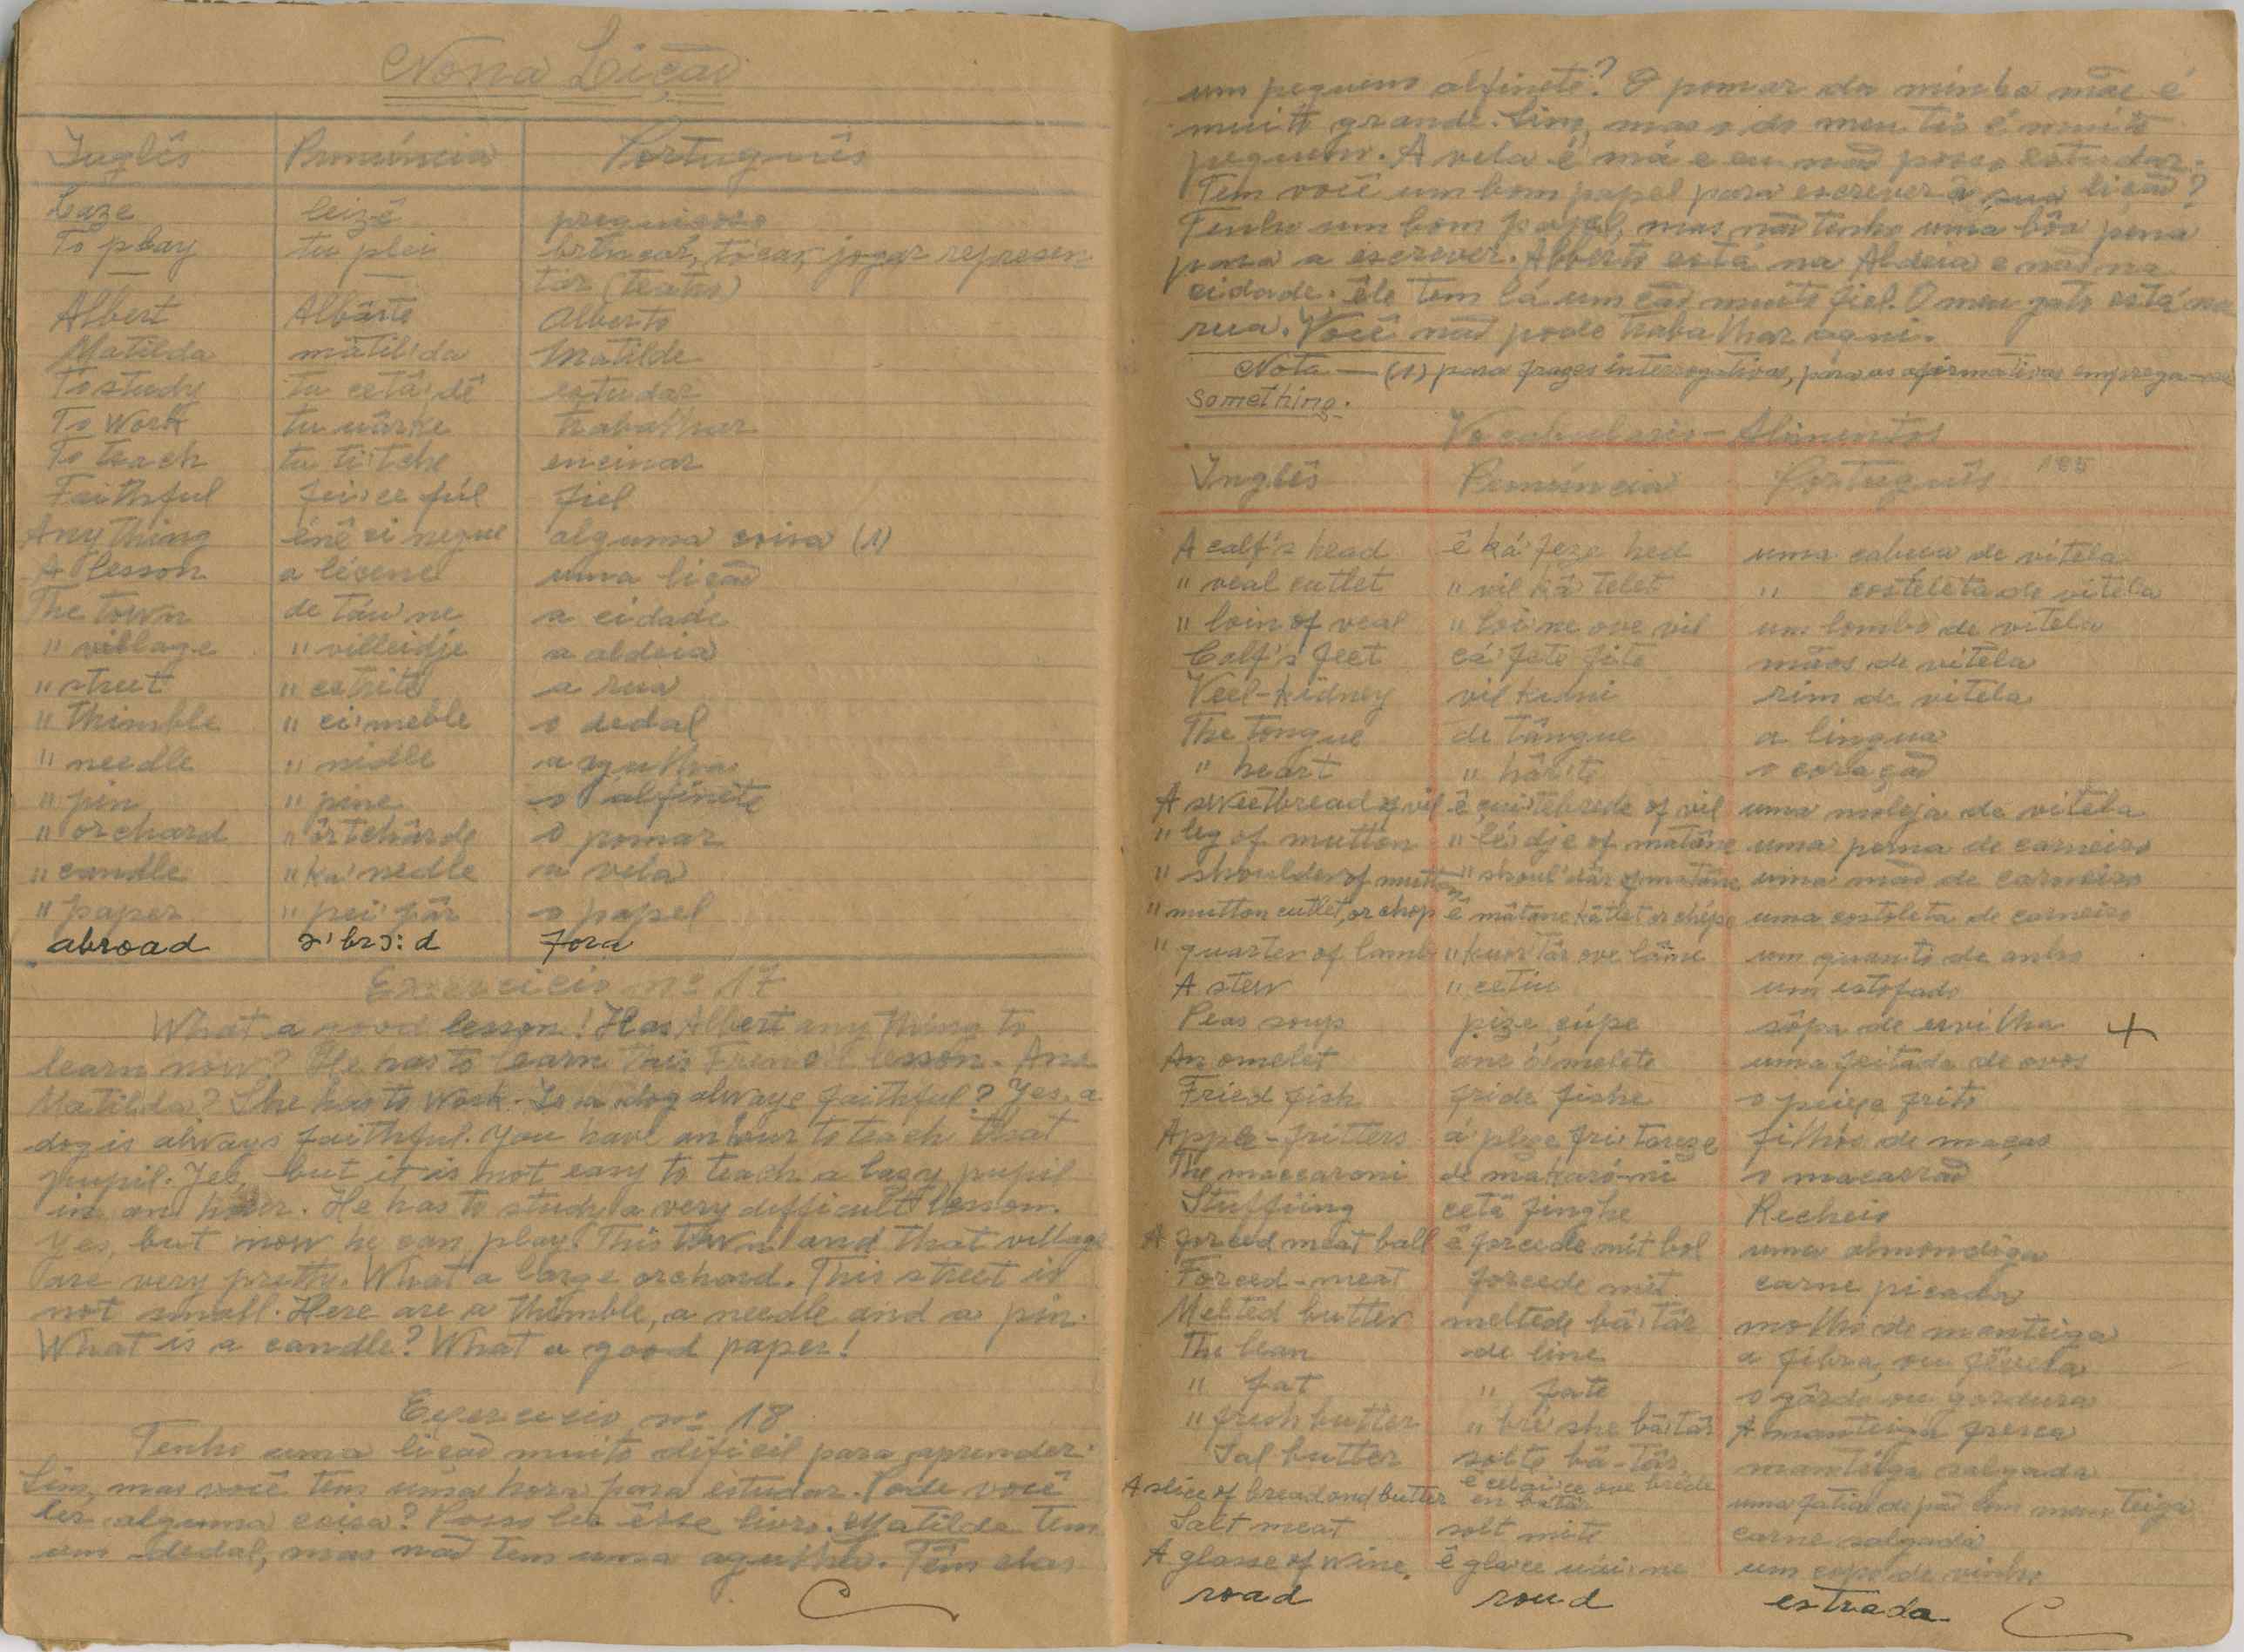 Nona Lição
Inglês Pronúncia Português
Laze leizê preguiçoso
To play tu plei brincar, tocar, jogar represen
tar (teatro)
Albert Albârte Alberto
Matilda mâtilda Matilde
To study tu cetâ'dê estudar
To Work tu uârke trabalhar
To teach tu ti'tche encinar
Faithful fei'ce ful fiel
Any thing énê ci negue alguma coisa (1)
A lesson a lécene uma lição
The town de táu ne a cidade
" village " villeidje a aldeia
" street " cetrite a rua
" thimble " ci'meble o dedal
" needle " nidle a agulha
" pin " pine o alfinete
" orchard " ôrtchârde o pomar
" candle " ka'nedle a vela
" paper " pei'pâr o papel
abroad ə'brɔ:d fora
Exercicio nº 17
What a good lesson! Has Albert any thing to
learn now? He has to learn this French lesson. And
Matilda? She has to work. Is a dog always faithful? Yes, a
dog is always faithful. You have an hour to teach that
pupil. Yes, but it is not easy to teach a lazy pupil
in an hour. He has to study a very difficult lesson.
Yes, but now he can play! This town and that village
are very pretty. What a large orchard. This street is
not small. Here are a thimble, a needle and a pin.
What is a candle? What a good paper!
Exercicio nº 18
Tenho uma lição muito dificil para aprender.
Sim, mas você tem uma hora para estudar. Pode você
ler alguma coisa? Posso ler êsse livro. Matilda tem
um dedal, mas não tem uma agulha. Têm elas
um pequeno alfinete? O pomar da minha mãe é
muito grande. Sim, mas o do meu tio é muito
pequeno. A vela é má e eu não posso estudar.
Tem você um bom papel para escrever a sua lição?
Tenho um bom papel, mas não tenho uma bôa pena
para a escrever. Alberto está na Aldeia e não na
cidade. êle tem lá um cão muito fiel. O meu gato está na
rua. Você não pode trabalhar aqui.
Nota — (1) para frazes interrogativas, para as afirmativas emprega-se
something.
Vocabulario - Alimentos
Inglês Pronúncia Português 185
A calf's head ê ká'feze hed uma cabeça de vitela
" veal cutlet " vil kâ telet " costeleta de vitela
" loin of veal " loi'ne ove vil um lombo de vitela
Calf's feet cá'fete fite mãos de vitela
Veel-kidney vil kidni rim de vitela
The tongue de tângue a lingua
" heart " hâr'te o coração
A sweetbread of vil ê çui'tebrede of vil uma moleja de vitela
" leg of mutton " lé'dje of matâne uma perna de carneiro
" shoulder of mutton " shoul'dâr of matâne uma mão de carneiro
" mutton cutlet, or chop ê mâtane kâtlet or chépe uma costoleta de carneiro
" quarter of lamb " kuor'târ ove lâme um quarto de anho
A stew " cetiu um estofado
Peas soup pize çúpe sôpa de ervilha +
An omelet ane ó'melete uma feitada de ovos
Fried fish fride fishe o peixe frito
Apple-fritters á'pleze fri'tareze filhós de maçãs
The maccaroni de makaró-ni o macarrão
Stuffiing cetâ finghe Recheio
A forced meat ball ê forcede mit bol uma almondiga
Forced-meat forcede mit carne picada
Melted butter meltede bâ'târ molho de manteiga
The lean de line a fibra, ou fêvera
" fat " fate o gôrdo ou gordura
" fresh butter " bré she bâ'târ A manteiga fresca
Sal butter solte bâ-târ manteiga salgada
A slice of bread and butter ê celai'ce ove brede en batâr uma fatia de pão com manteiga
Salt meat solt mite carne salgada
A glasse of wine. ê gla'ce uái'ne um copo de vinho
road roud estrada